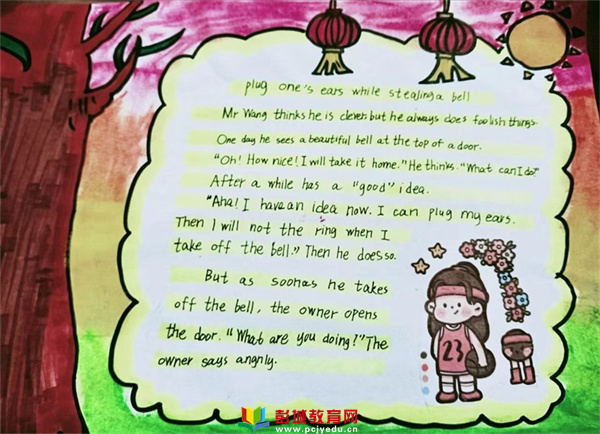 plug one's ears while stealing a bell
Mr Wang thinks he is clever but he always does foolish things.
One day he sees a beautiful bell at the top of a door.
"Oh! How nice! I will take it home." He thinks. "What can I do?"
After a while has a "good" idea.
"Aha! I have an idea now. I can plug my ears.
Then I will not the ring when I
take off the bell." Then he does so.
But as soon as he takes
off the bell, the owner opens
the door. "What are you doing!" The
owner says angrily.
23
彭城教育网
www.pcjyedu.cn